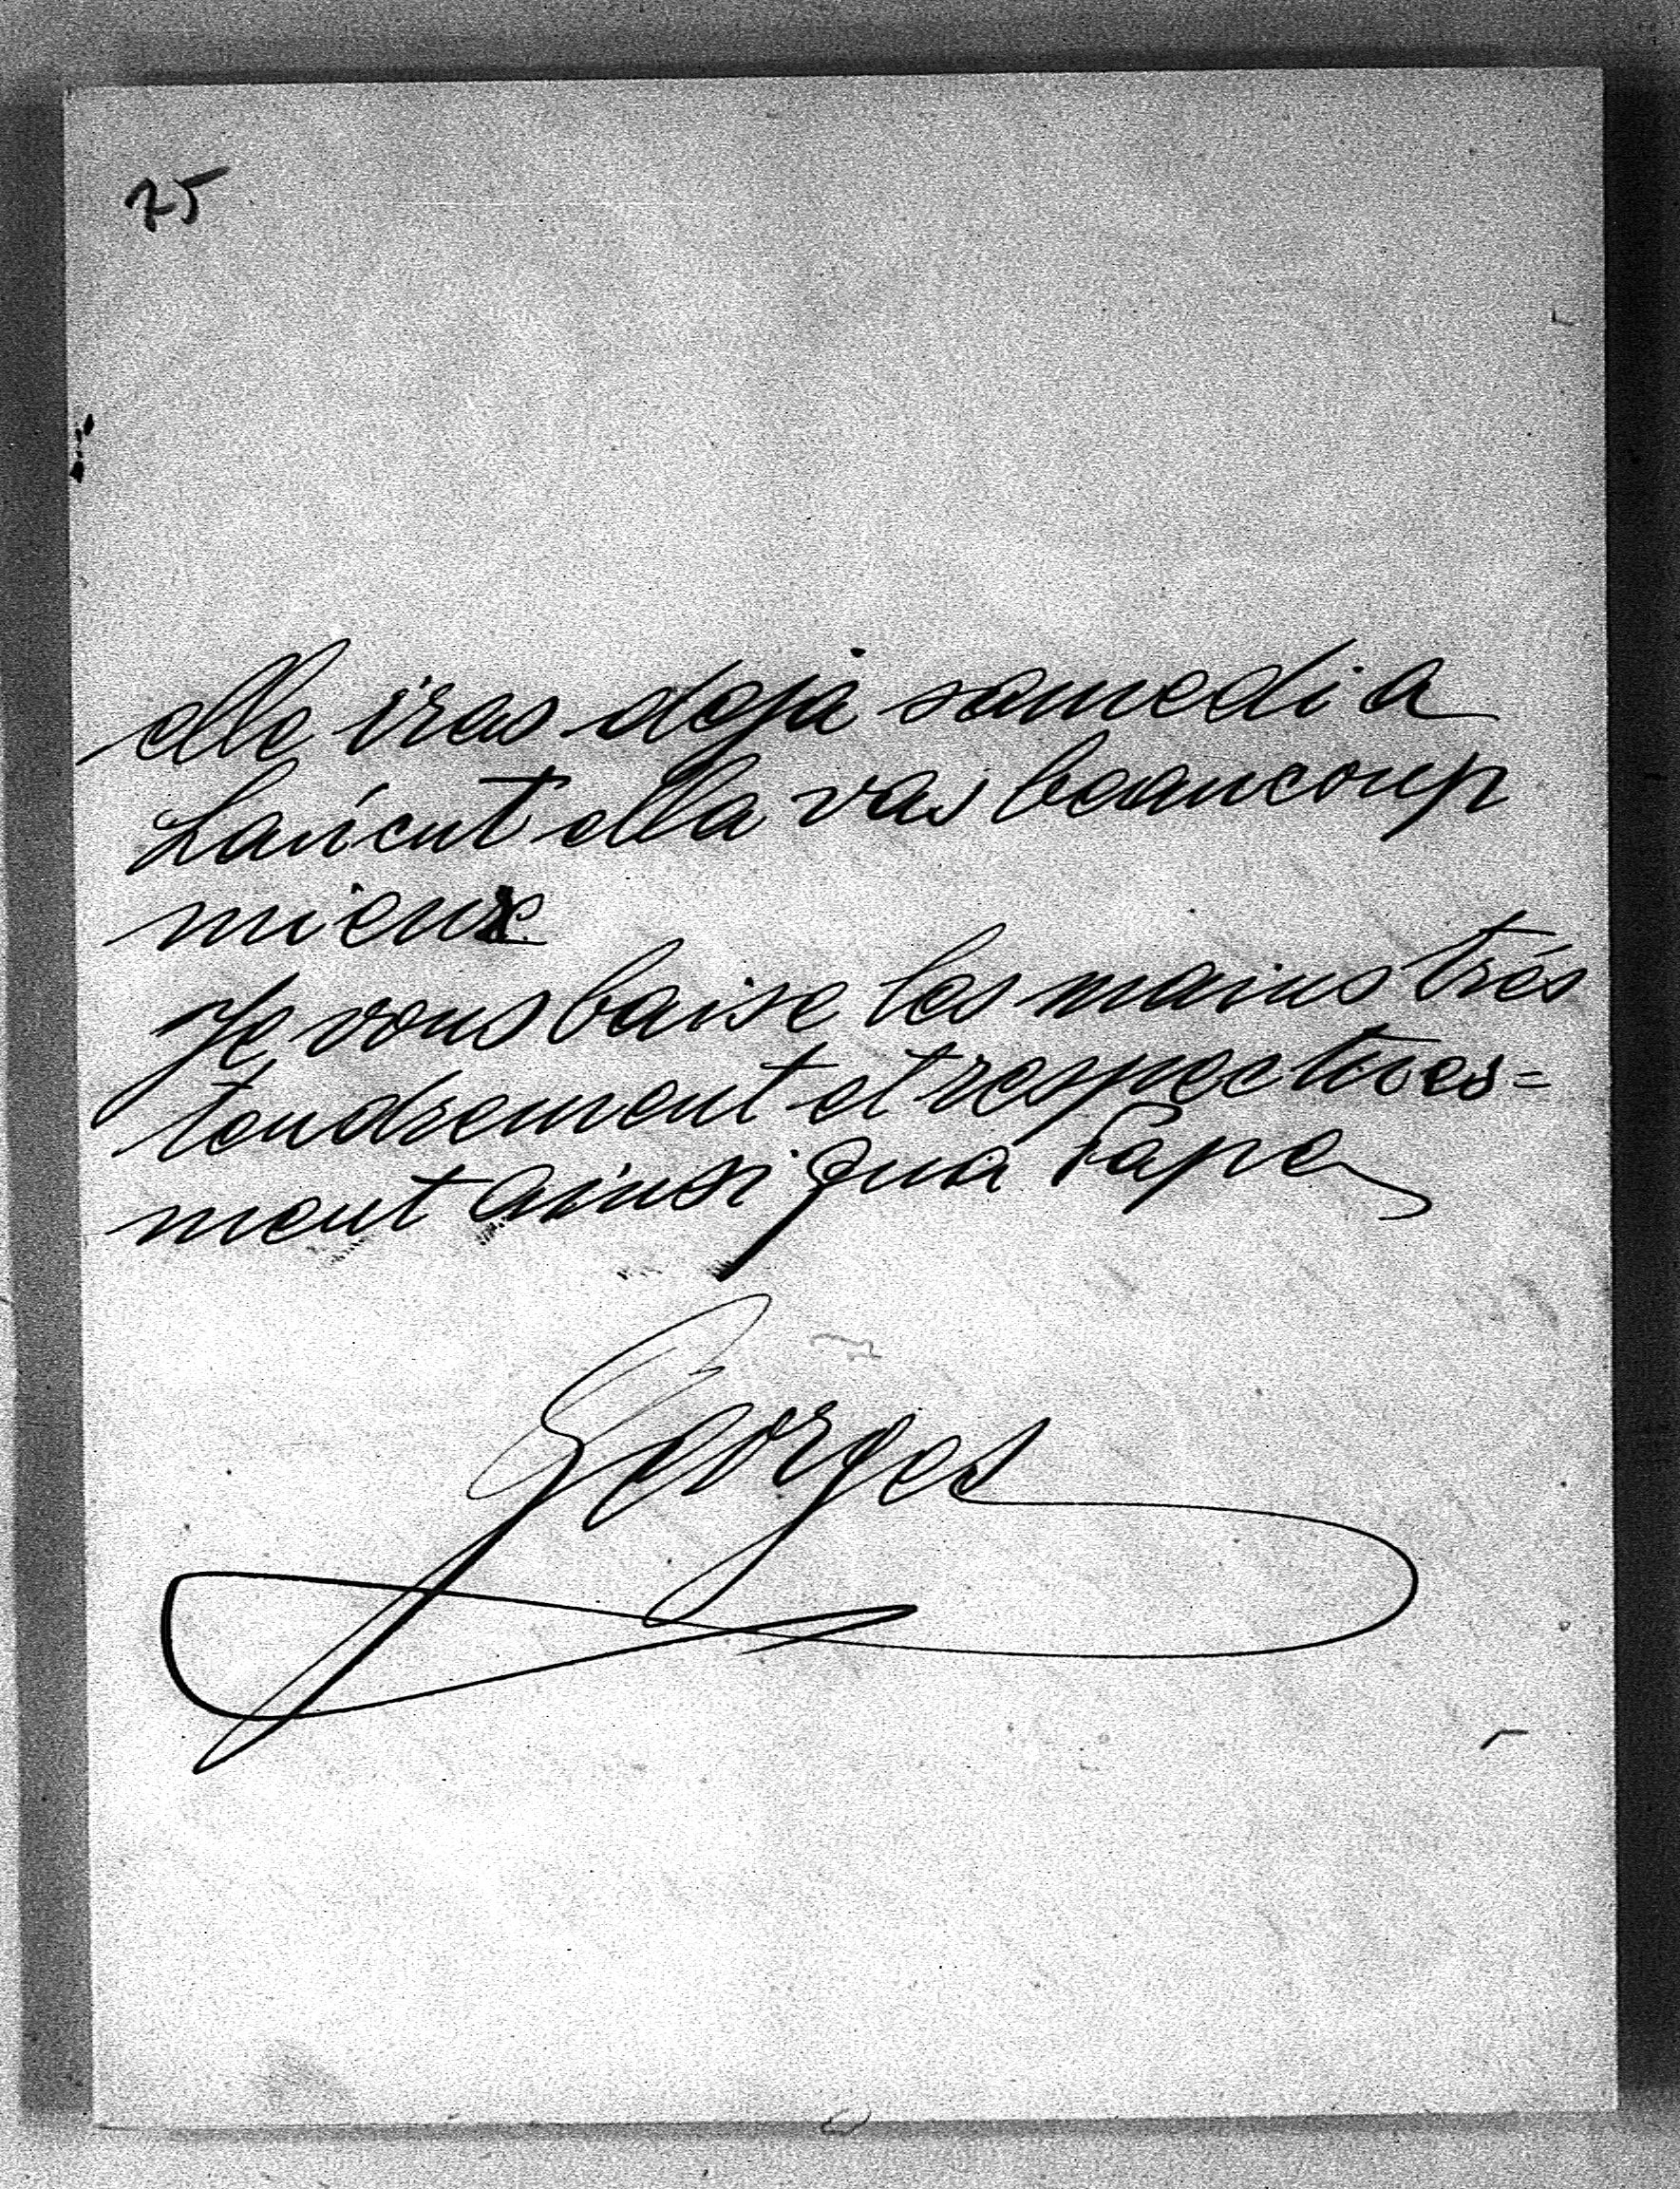 25
elle iras deja samedi a
Łańcut elle vas beaucoup
mieux
Je vous baise les mains très
tendrement et respectives=
ment ainsi qua Papa
Georges